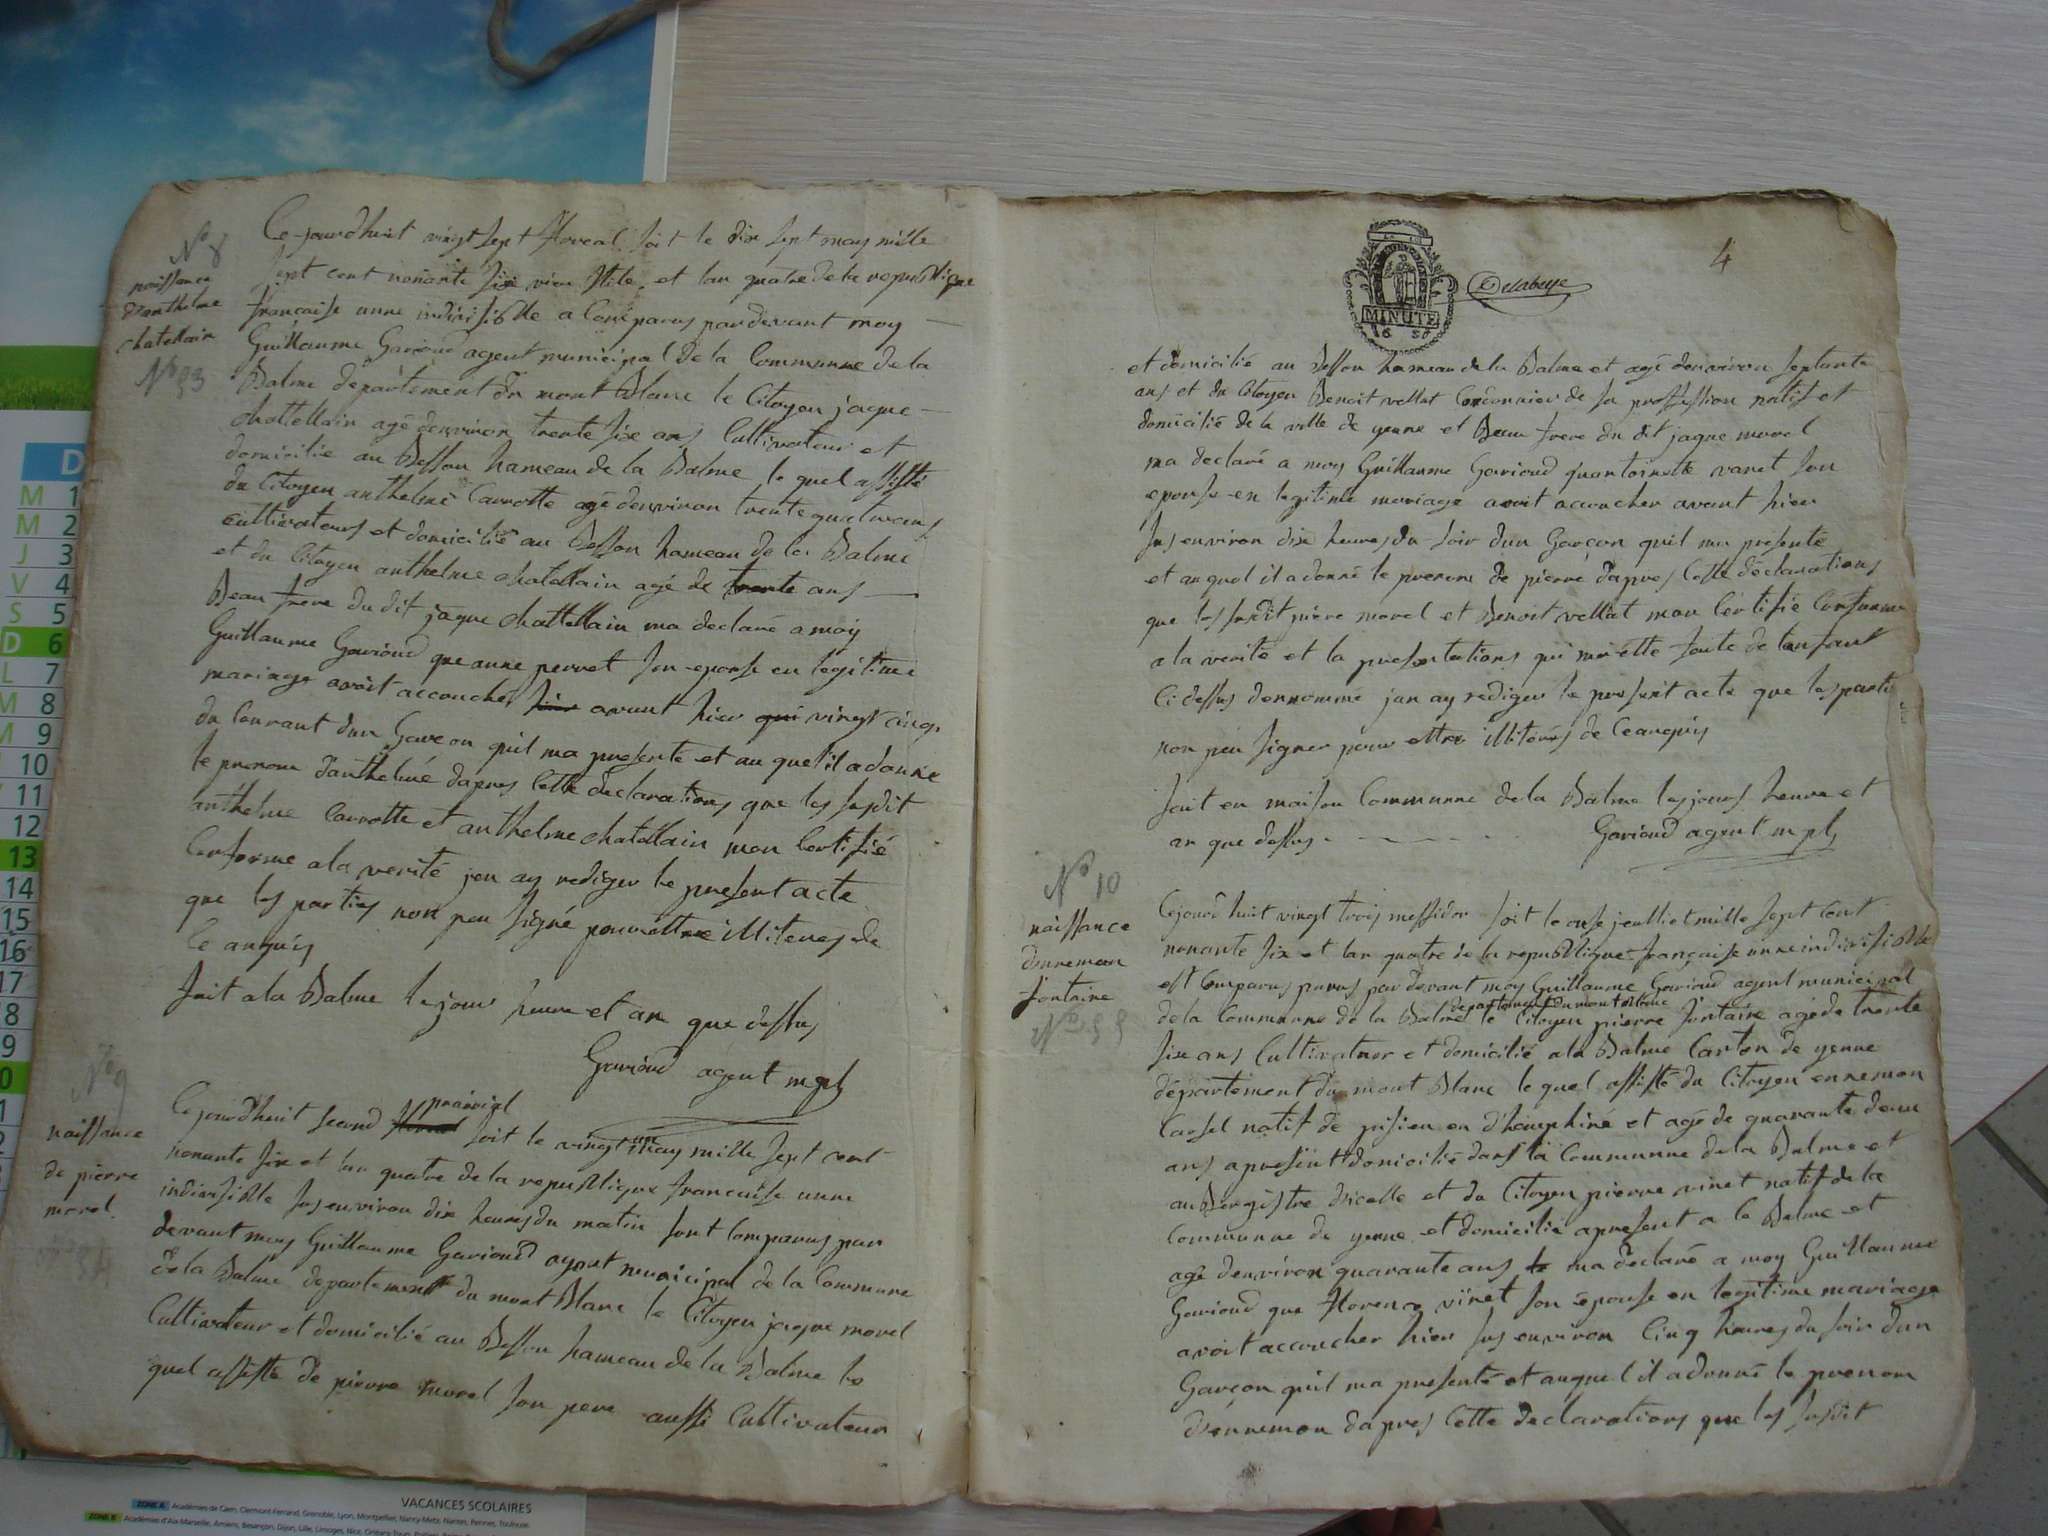 N° 8
naissance
d'anthelme
chatellain
N° 53
Ce-jourdhuit vingt sept floreal soit le dix sept may mille
sept cent nonante six vieu stile, et lan quatre de la republique
francaise unne indivisible a Comparus pardevant moy —
Guillaume Gavioud agent municipal de la Commune de la
Balme departement du mont Blanc le Citoyen jaque —
chattellain agé denviron trente six ans Cultivateur et
domicilie au Besson hameau de la Balme le quel assisté
du Citoyen anthelme Carrotte agé denviron trente quatre ans
cultivateurs et domicilié au Besson hameau de la Balme
et du Citoyen anthelme chatellain agé de trente ans —
Beau frere du dit jaque chattellain ma declaré a moy
Guillaume Gavioud que anne perret son epouse en legitime
mariage avoit accoucher hier avant hier qui vingt cinq
du Courant dun Garcon quil ma presenté et au quel il a donné
le prenom danthelme dapres Cette declarations que les susdit
anthelme Carrotte et anthelme chatellain mon Certifié
Conforme a la verité jen ay rediger le present acte
que les parties non peu signé pour ettre illiteres de
Ce anquis
fait a la Balme le jour heure et an que dessus
Gavioud agent mpl
N° 9
naissance
de pierre
morel.
Cejourdhuit second floreal prairial soit le vingt un may mille sept cent
nonante six et lan quatre de la republique francaise unne
indivisible sus environ dix heures du matin sont Comparus par
devant moy Guillaume Gavioud agent municipal de la Commune
de la Balme departement du mont Blanc le Citoyen jaque morel
Cultivateur et domicilié au Besson hameau de la Balme le
quel assisté de pierre morel son pere aussi Cultivateur
4
MINUTE
Delabeye
et domicilié au Besson hameau de la Balme et agé denviron septante
ans et du Citoyen Benoit vellat Cordonnier de sa proffession natif et
domicilié de la ville de yenne et Beau frere du dit jaque morel
ma declaré a moy Guillaume Gavioud quantoinette varet son
epouse en legitime mariage avoit accoucher avant hier
sus environ dix heures du soir dun Garçon quil ma presenté
et au quel il a donné le prenom de pierre dapres Cette declarations
que les susdit pierre morel et Benoit vellat mon Certifié Conforme
a la verité et la presentations qui ma etté faite de lenfant
Ci dessus dennommé jan ay rediger le present acte que les partie
non peu signer pour ettre illiteres de Ceanquis
fait en maison Commune de la Balme les jours heure et
an que dessus - - - - - Gavioud agent mpl
N° 10
naissance
dennemon
fontaine
N° 55
Cejourdhuit vingt trois messidor soit le onse jeulliet mille sept cent
nonante six et lan quatre de la republique francaise unne indivisible
est Comparus parus par devant moy Guillaume Gavioud agent municipal
de la Commune de la Balme departement du mont Blanc le Citoyen pierre fontaine agé de trente
six ans Cultivateur et domicilié a la Balme Canton de yenne
departement du mont Blanc le quel assisté du Citoyen ennemon
Carsel natif de pisieu en dhauphiné et agé de quarante deux
ans apresent domicilié dans la Commune de la Balme et
au Bergistre dicelle et du Citoyen pierre vinet natif de la
Commune de yenne et domicilié apresent a la Balme et
agé denviron quarante ans le ma declaré a moy Guillaume
Gavioud que florence vinet son epouse en legitime mariage
avoit accoucher hier sus environ Cinq heures du soir dun
Garçon quil ma presenté et auquel il a donné le prenom
dennemon dapres Cette declarations que les susdit
VACANCES SCOLAIRES
ZONE A Académies de Caen, Clermont-Ferrand, Grenoble, Lyon, Montpellier, Nancy-Metz, Nantes, Rennes, Toulouse
ZONE B Académies d'Aix-Marseille, Amiens, Besançon, Dijon, Lille, Limoges, Nice, Orléans-Tours, Poitiers,
D
M 1
M 2
J 3
V 4
S 5
D 6
L 7
M 8
M 9
10
11
12
13
14
15
16
17